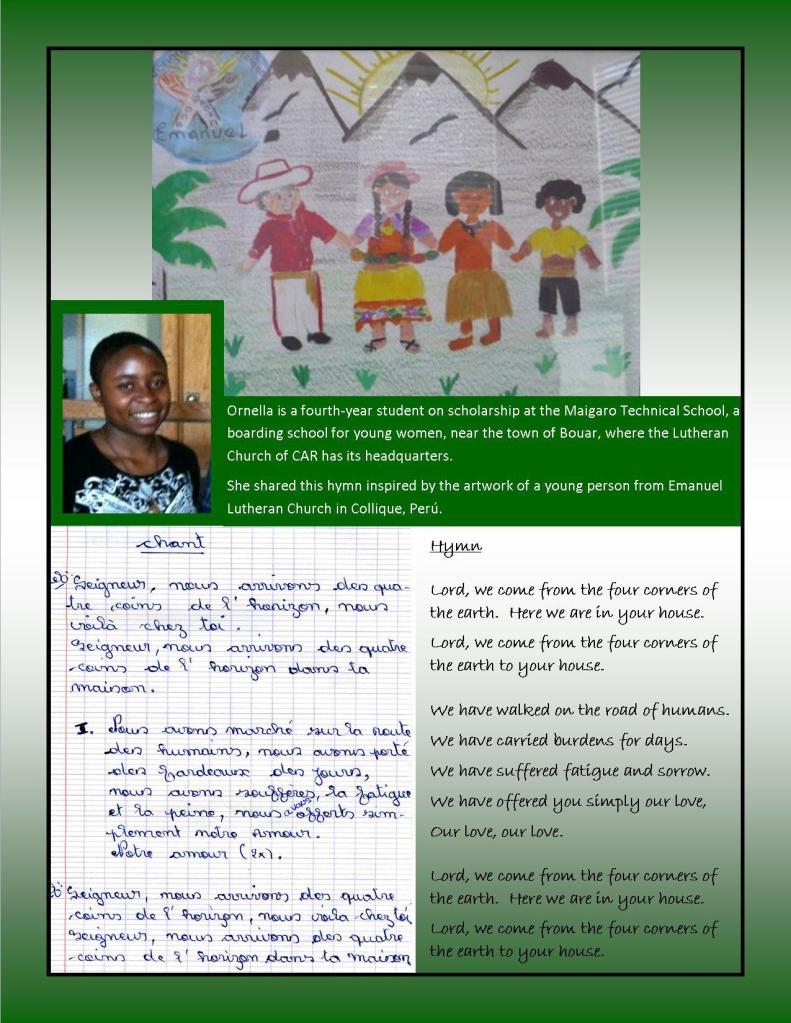 Emanuel
Ornella is a fourth-year student on scholarship at the Maigaro Technical School, a
boarding school for young women, near the town of Bouar, where the Lutheran
Church of CAR has its headquarters.
She shared this hymn inspired by the artwork of a young person from Emanuel
Lutheran Church in Collique, Perú.
chant
Seigneur, nous arrivons des qua-
tre coins de l'horizon, nous
voilà chez toi.
Seigneur, nous arrivons des quatre
coins de l'horizon dans ta
maison.
I. Nous avons marché sur la route
des humains, nous avons porté
des fardeaux des jours,
nous avons souffères, la fatigue
et la peine, nous avons offerts sim-
plement notre amour.
Notre amour (2x).
Seigneur, nous arrivons des quatre
coins de l'horizon, nous voilà chez toi
Seigneur, nous arrivons des quatre
-coins de l'horizon dans ta maison
Hymn
Lord, we come from the four corners of
the earth. Here we are in your house.
Lord, we come from the four corners of
the earth to your house.
We have walked on the road of humans.
We have carried burdens for days.
We have suffered fatigue and sorrow.
We have offered you simply our love,
Our love, our love.
Lord, we come from the four corners of
the earth. Here we are in your house.
Lord, we come from the four corners of
the earth to your house.